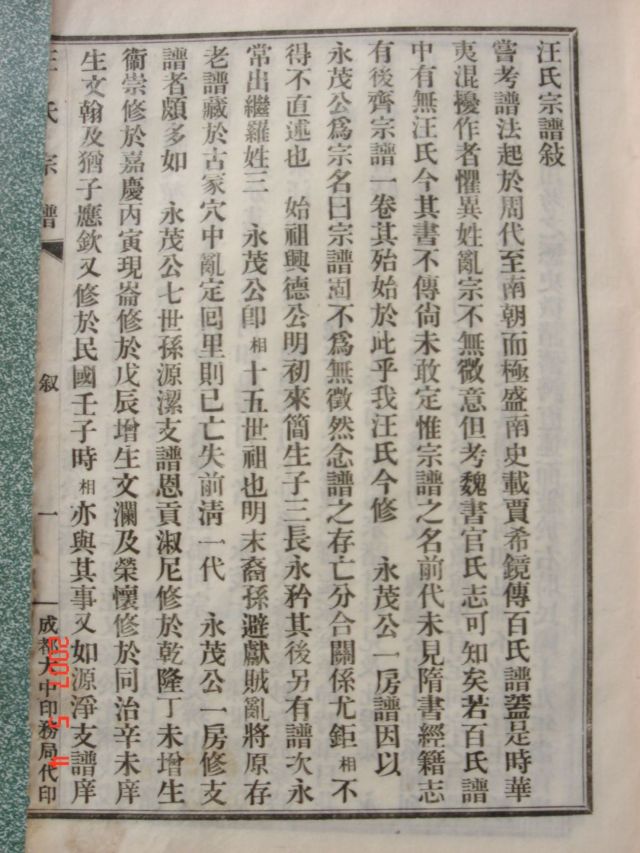 汪氏宗譜敍
嘗考譜法起於周代至南朝而極盛南史載賈希鏡傳百氏譜蓋是時華
夷混擾作者懼異姓亂宗不無微意但考魏書官氏志可知矣若百氏譜
中有無汪氏今其書不傳尙未敢定惟宗譜之名前代未見隋書經籍志
有後齊宗譜一卷其殆始於此乎我汪氏今修　永茂公一房譜因以
永茂公爲宗名曰宗譜固不爲無徵然念譜之存亡分合關係尤鉅相不
得不直述也　始祖興德公明初來簡生子三長永矜其後另有譜次永
常出繼羅姓三　永茂公卽相十五世祖也明末裔孫避獻賊亂將原存
老譜藏於古冢穴中亂定囘里則已亡失前淸一代　永茂公一房修支
譜者頗多如　永茂公七世孫源潔支譜恩貢淑尼修於乾隆丁未增生
衞崇修於嘉慶丙寅現崙修於戊辰增生文瀾及榮懷修於同治辛未庠
生文翰及猶子應欽又修於民國壬子時相亦與其事又如源淨支譜庠
氏宗譜
叙
一
成都大中印務局代印
2007 5 4